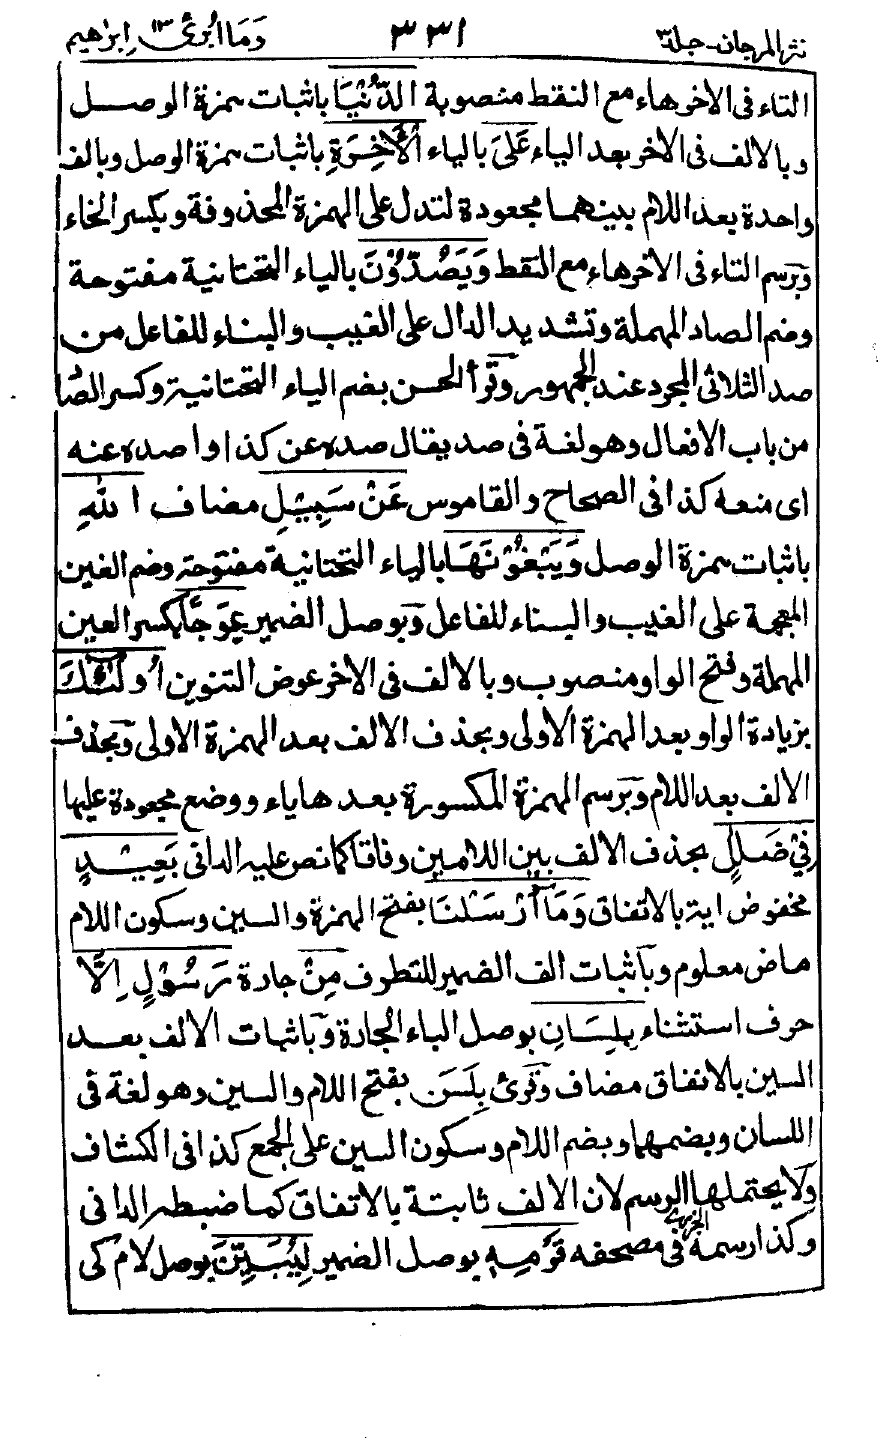 نثر المرجان-جلد٣ ٣٣١ وَمَا اُبَرِّئُ ١٣ اِبرٰهیم
التاء فى الاخرهاء مع النقط منصوبة الدُّنْيَا باثبات همزة الوصل
وبالالف فى الاخر بعد الياء عَلَى بالياء الْاٰخِرَةِ باثبات همزة الوصل وبالف
واحدة بعد اللام بينهما مجعودة لتدل على الهمزة المحذوفة وبكسر الخاء
وَبرسم التاء فى الاخرهاء مع النقط وَيَصُدُّوْنَ بالياء التحتانية مفتوحة
وضم الصاد المهملة وتشديد الدال على الغيب والبناء للفاعل من
صد الثلاثى المجرد عند الجمهور وقرأ الحسن بضم الياء التحتانية وكسر الصاد
من باب الافعال وهو لغة فى صد يقال صده عن كذا واصده عنه
اى منعه كذا فى الصحاح والقاموس عَنْ سَبِيْلِ مضاف اللّٰهِ
باثبات همزة الوصل وَيَبْغُوْنَهَا بالياء التحتانية مفتوحة وضم الغين
المعجمة على الغيب والبناء للفاعل وَبوصل الضمير عِوَجًا بكسر العين
المهملة وفتح الواو منصوب وبالالف فى الاخر عوض التنوين اُولٰئِكَ
بزيادة الواو بعد الهمزة الاولى وبحذف الالف بعد الهمزة الاولى وَبحذف
الالف بعد اللام وَبرسم الهمزة المكسورة بعدها ياء ووضع مجعودة عليها
فِيْ ضَلٰلٍ بحذف الالف بين اللامين وفاقا كما نص عليه الدانى بَعِيْدٍ
مخفوض اية بالاتفاق وَمَا اَرْسَلْنَا بفتح الهمزة والسين وسكون اللام
ماض معلوم وباثبات الف الضمير للتطرف مِنْ جارة رَسُوْلٍ اِلَّا
حرف استثناء بِلِسَانِ بوصل الباء الجارة وَباثبات الالف بعد
السين بالاتفاق مضاف وَقرئ بِلَسَن بفتح اللام والسين وهو لغة فى
اللسان وبضمهما وبضم اللام وسكون السين على الجمع كذا فى الكشاف
وَلا يحتملها الرسم لان الالف ثابتة بالاتفاق كما ضبطه الدانى
وكذا رسمه الجزرى فى مصحفه قَوْمِهٖ بوصل الضمير لِيُبَيِّنَ بوصل لام كى